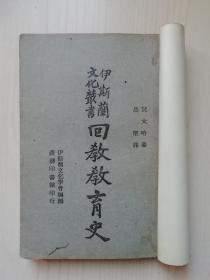 託太哈著
馬堅譯
伊斯蘭
文化叢書
回教教育史
伊斯蘭文化學會編
商務印書館印行